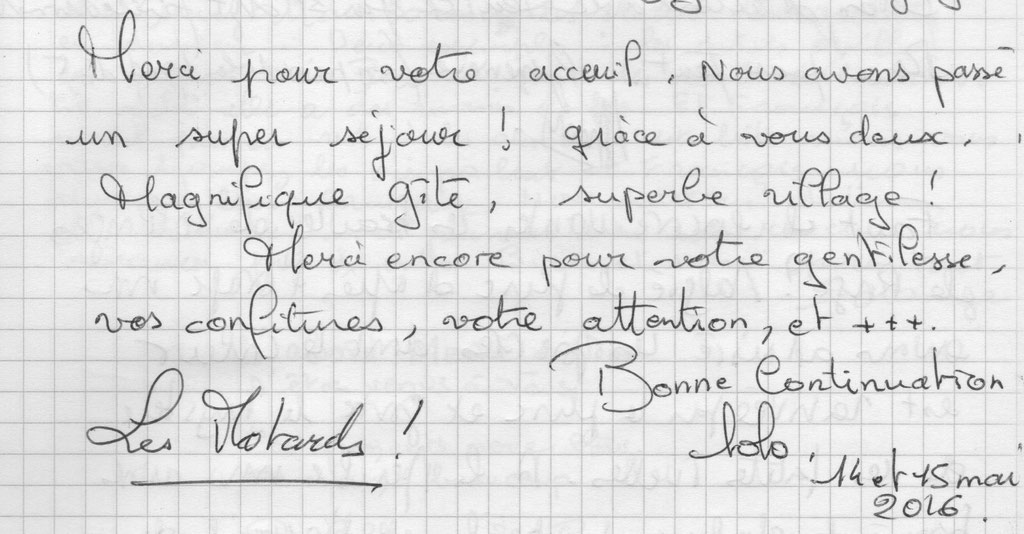 Merci pour votre acceuil. Nous avons passé
un super séjour ! grâce à vous deux.
Magnifique gîte, superbe village !
Merci encore pour votre gentilesse,
vos confitures, votre attention, et +++.
Bonne Continuation
Les Motards !
lolo.
14 et 15 mai
2016.